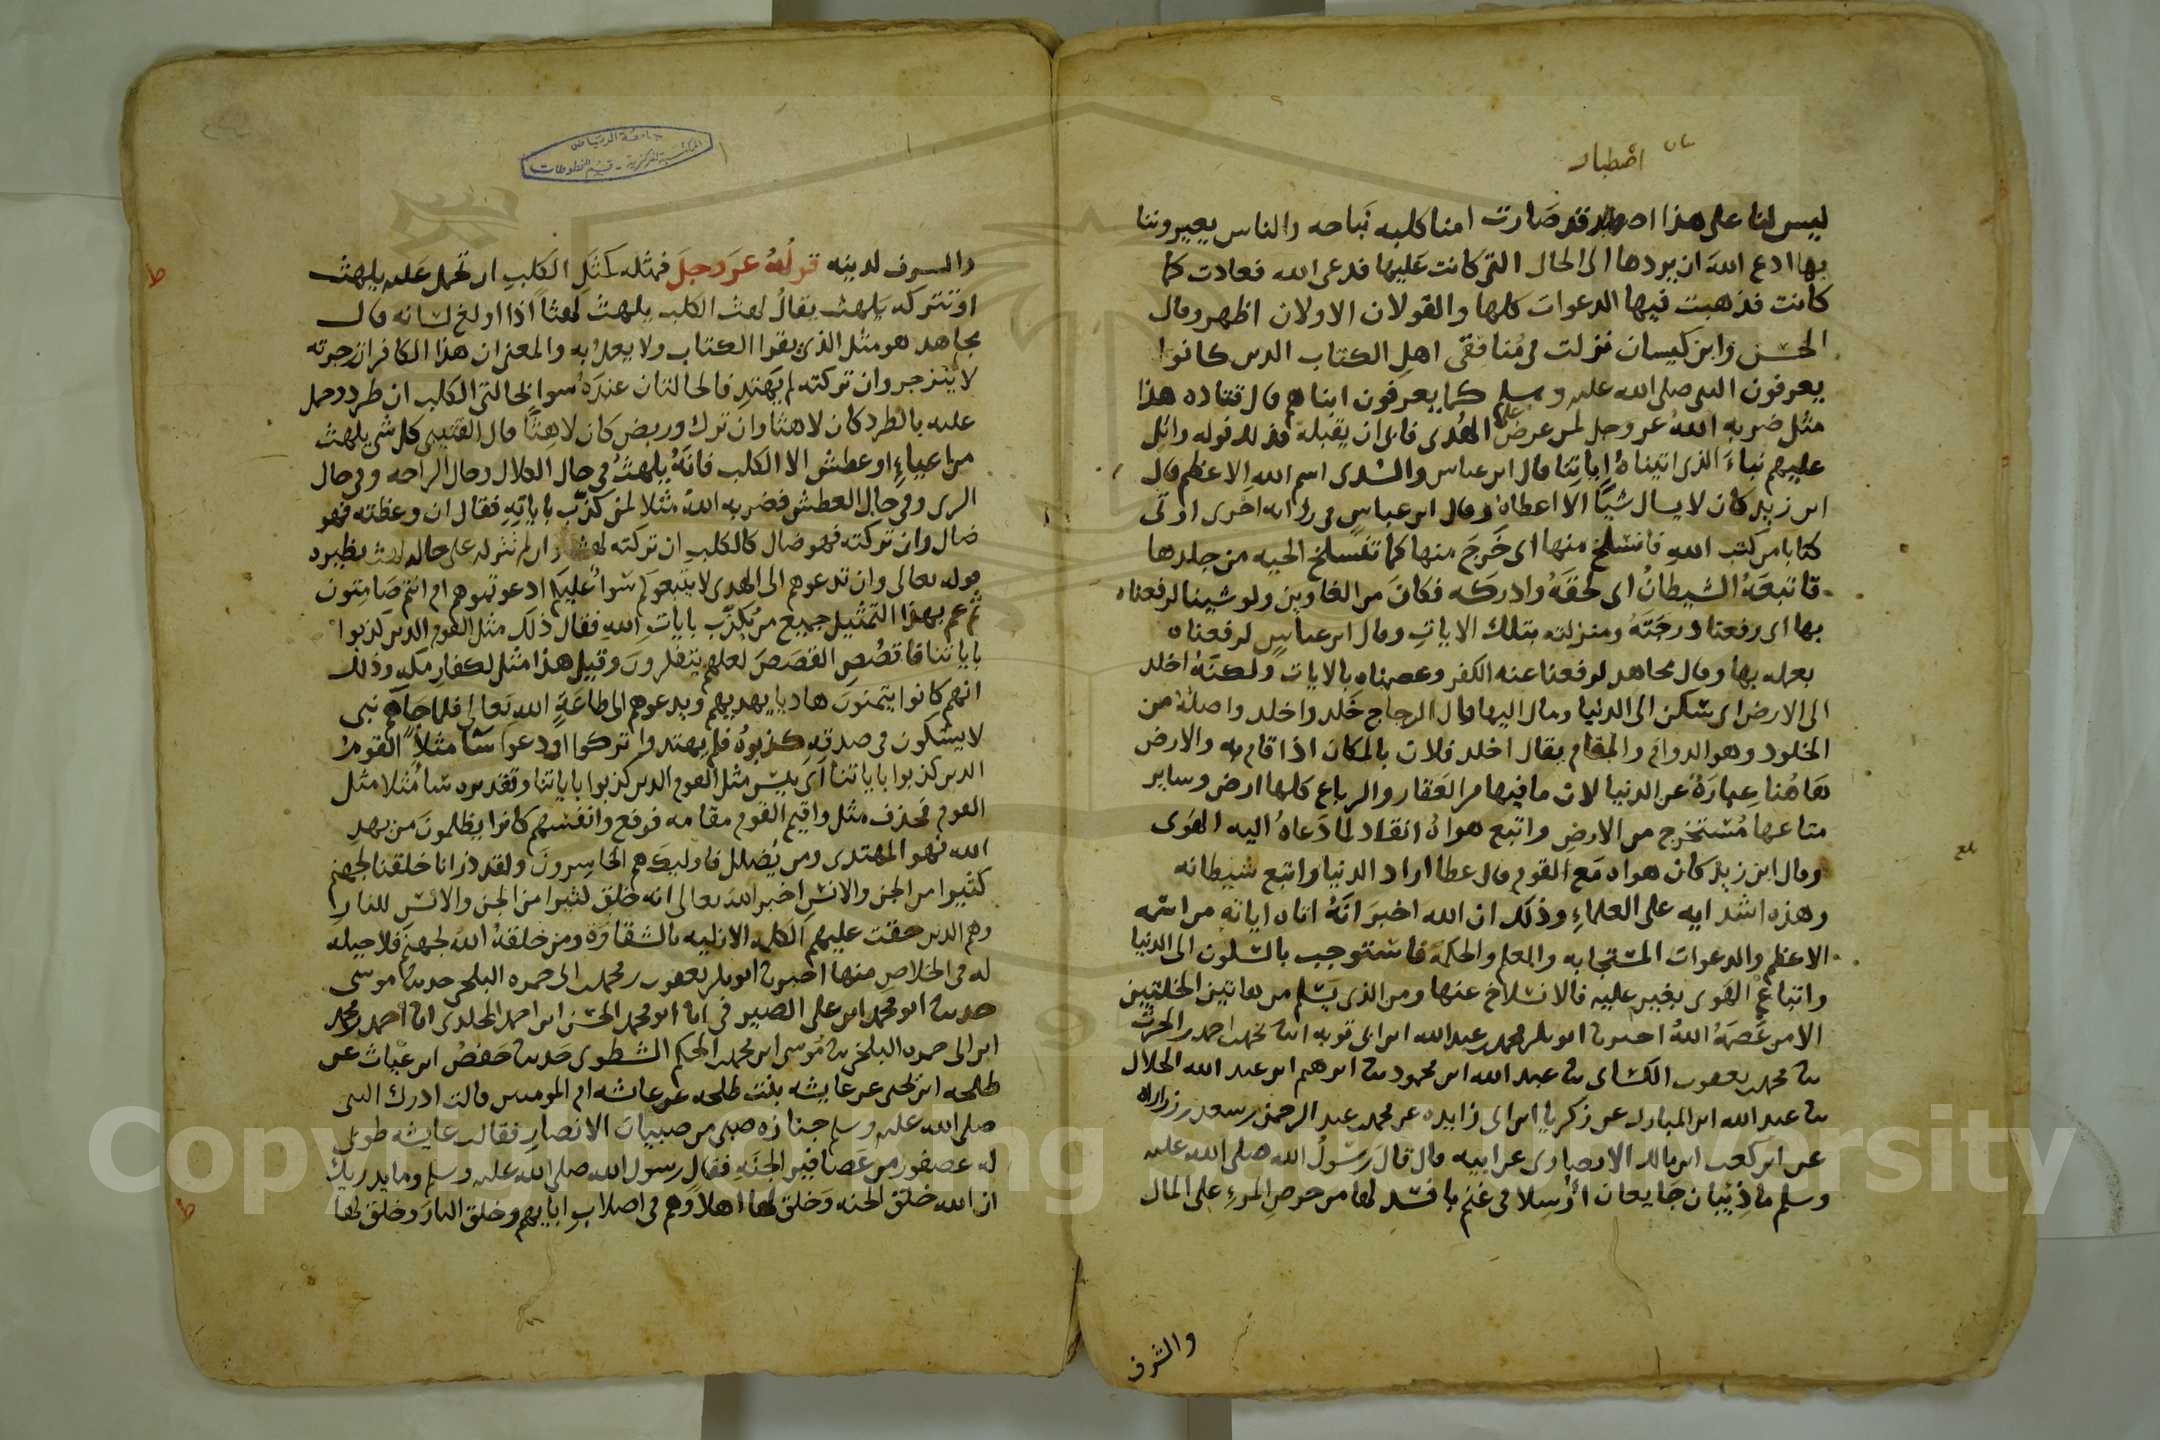 بيان اصطبار
ليس لنا على هذا اصطبار قد صارت امنا كلبه نباحه والناس يعيروننا
بها ادع الله ان يردها الى الحال التى كانت عليها فدعى الله فعادت كما
كانت فذهبت فيها الدعوات كلها والقولان الاولان اظهر وقال
الحسن وابن كيسان نزلت فى منافقى اهل الكتاب الدين كانوا
يعرفون النبى صلى الله عليه وسلم كما يعرفون ابناهم قال قتاده هذا
مثل ضربه الله عز وجل لمن عرض عليه الهدى فابى ان يقبله فذلك قوله واتل
عليهم نباء الذى اتيناه اياتنا قال ابن عباس والسدى اسم الله الاعظم قال
ابن زيد كان لا يسال شيًا الا اعطاه وقال ابن عباس فى روايه اخرى اوتى
كتابا من كتب الله فانسلخ منها اى خرج منها كما تنسلخ الحيه من جلدها
فاتبعه الشيطان اى لحقه وادركه فكان من الغاوين ولو شينا لرفعناه
بها اى رفعنا درجته ومنزلته بتلك الايات وقال ابن عباس لرفعناه
بعمله بها وقال مجاهد لرفعنا عنه الكفر وعصمناه بالايات ولكنه اخلد
الى الارض اى سكن الى الدنيا ومال اليها قال الزجاج خلد واخلد واصله من
الخلود وهو الدوام والمقام يقال اخلد فلان بالمكان اذا اقام به والارض
هاهنا عبارة عن الدنيا لان ما فيها من العقار والرباع كلها ارض وساير
متاعها مستخرج من الارض واتبع هواه انقاد لما دعاه اليه الهوى
وقال ابن زيد كان هواه مع القوم قال عطا اراد الدنيا واتبع شيطانه
وهذه اشد ايه على العلماء وذلك ان الله اخبر انه اتاه اياته من اسمه
الاعظم والدعوات المستجابه والعلم والحكمة فاستوجب بالسكون الى الدنيا
واتباع الهوى بغير عليه فالانسلاخ عنها ومن الذى يسلم من هاتين الخلتين
الا من عصمه الله اخبرنا ابو بكر محمد بن عبد الله ابن ابى توبه انا محمد بن احمد بن الحرث
نا محمد بن يعقوب الكساى نا عبد الله ابن محمود نا ابرهيم ابن عبد الله الخلال
نا عبد الله ابن المبارك عن زكريا ابن ابى زايده عن محمد بن عبد الرحمن بن سعد بن زراره
عن ابن كعب ابن مالك الانصارى عن ابيه قال قال رسول الله صلى الله عليه
وسلم ما ذئبان جايعان ارسلا فى غنم بافسد لها من حرص المرء على المال
والشرف
جامعة الرياض
المكتبة المركزية - قسم المخطوطات
والسرف لدينه قوله عز وجل فمثله كمثل الكلب ان تحمل عليه يلهث
او تتركه يلهث يقال لهث الكلب يلهث لهثا اذا اولغ لسانه قال
مجاهد هو مثل الذى يقرا الكتاب ولا يعمل به والمعنى ان هذا الكافر ان زجرته
لا ينزجر وان تركته لم يهتد فالحالتان عنده سوا كحالتى الكلب ان طرد وحمل
عليه بالطرد كان لاهثا وان ترك وربض كان لاهثا قال القتيبى كل شى يلهث
من اعياءٍ او عطش الا الكلب فانه يلهث فى حال الكلال وحال الراحه وفى حال
الرى وفى حال العطش فضربه الله مثلا لمن كذب باياته فقال ان وعظته فهو
ضال وان تركته فهو ضال كالكلب ان تركته لهث وان لم تتركه على حاله لهث نظيره
قوله تعالى وان تدعوهم الى الهدى لا يتبعوكم سواء عليكم ادعوتموهم ام انتم صامتون
ثم عم بهذا التمثيل جميع من يكذب بايات الله فقال ذلك مثل القوم الدين كذبوا
باياتنا فاقصص القصص لعلهم يتفكرون وقيل هذا مثل لكفار مكه وذلك
انهم كانوا يتمنون هاديا يهديهم ويدعوهم الى طاعة الله تعالى فلما جآهم نبى
لا يشكون فى صدقه كذبوه فلم يهتدوا تركوا او دعوا سآ مثلاً القوم
الدين كذبوا باياتنا اى بيس مثل القوم الدين كذبوا باياتنا وتقديره سا مثلا مثل
القوم فحذف مثل واقيم القوم مقامه فرفع وانفسهم كانوا يظلمون من يهد
الله فهو المهتدى ومن يضلل فاوليك هم الخاسرون ولقد ذرانا خلقنا لجهنم
كثيرا من الجن والانس اخبر الله تعالى انه خلق كثيرا من الجن والانس للنار
وهم الدين حقت عليهم الكلمه الازليه بالشقاوة ومن خلقه الله لجهنم فلا حيلة
له فى الخلاص منها اخبرنا ابو بكر يعقوب بن محمد بن ابى حمزه البلخى حدثنا موسى
حدثنا ابو محمد ابن على الصيرفى انا ابو محمد الحسن ابن احمد المخلدى انا احمد بن محمد
ابن ابى حمزه البلخى نا موسى ابن محمد بن الحكم الشطوى حدثنا حفص ابن غياث عن
طلحه ابن يحيى عن عايشه بنت طلحه عن عائشه ام المومنين قالت ادرك النبى
صلى الله عليه وسلم جنازه صبى من صبيان الانصار فقالت عايشه طوبى
له عصفور من عصافير الجنه فقال رسول الله صلى الله عليه وسلم وما يدريك
ان الله خلق الجنه وخلق لها اهلا وهم فى اصلاب ابايهم وخلق النار وخلق لها
Copyright © King Saud University